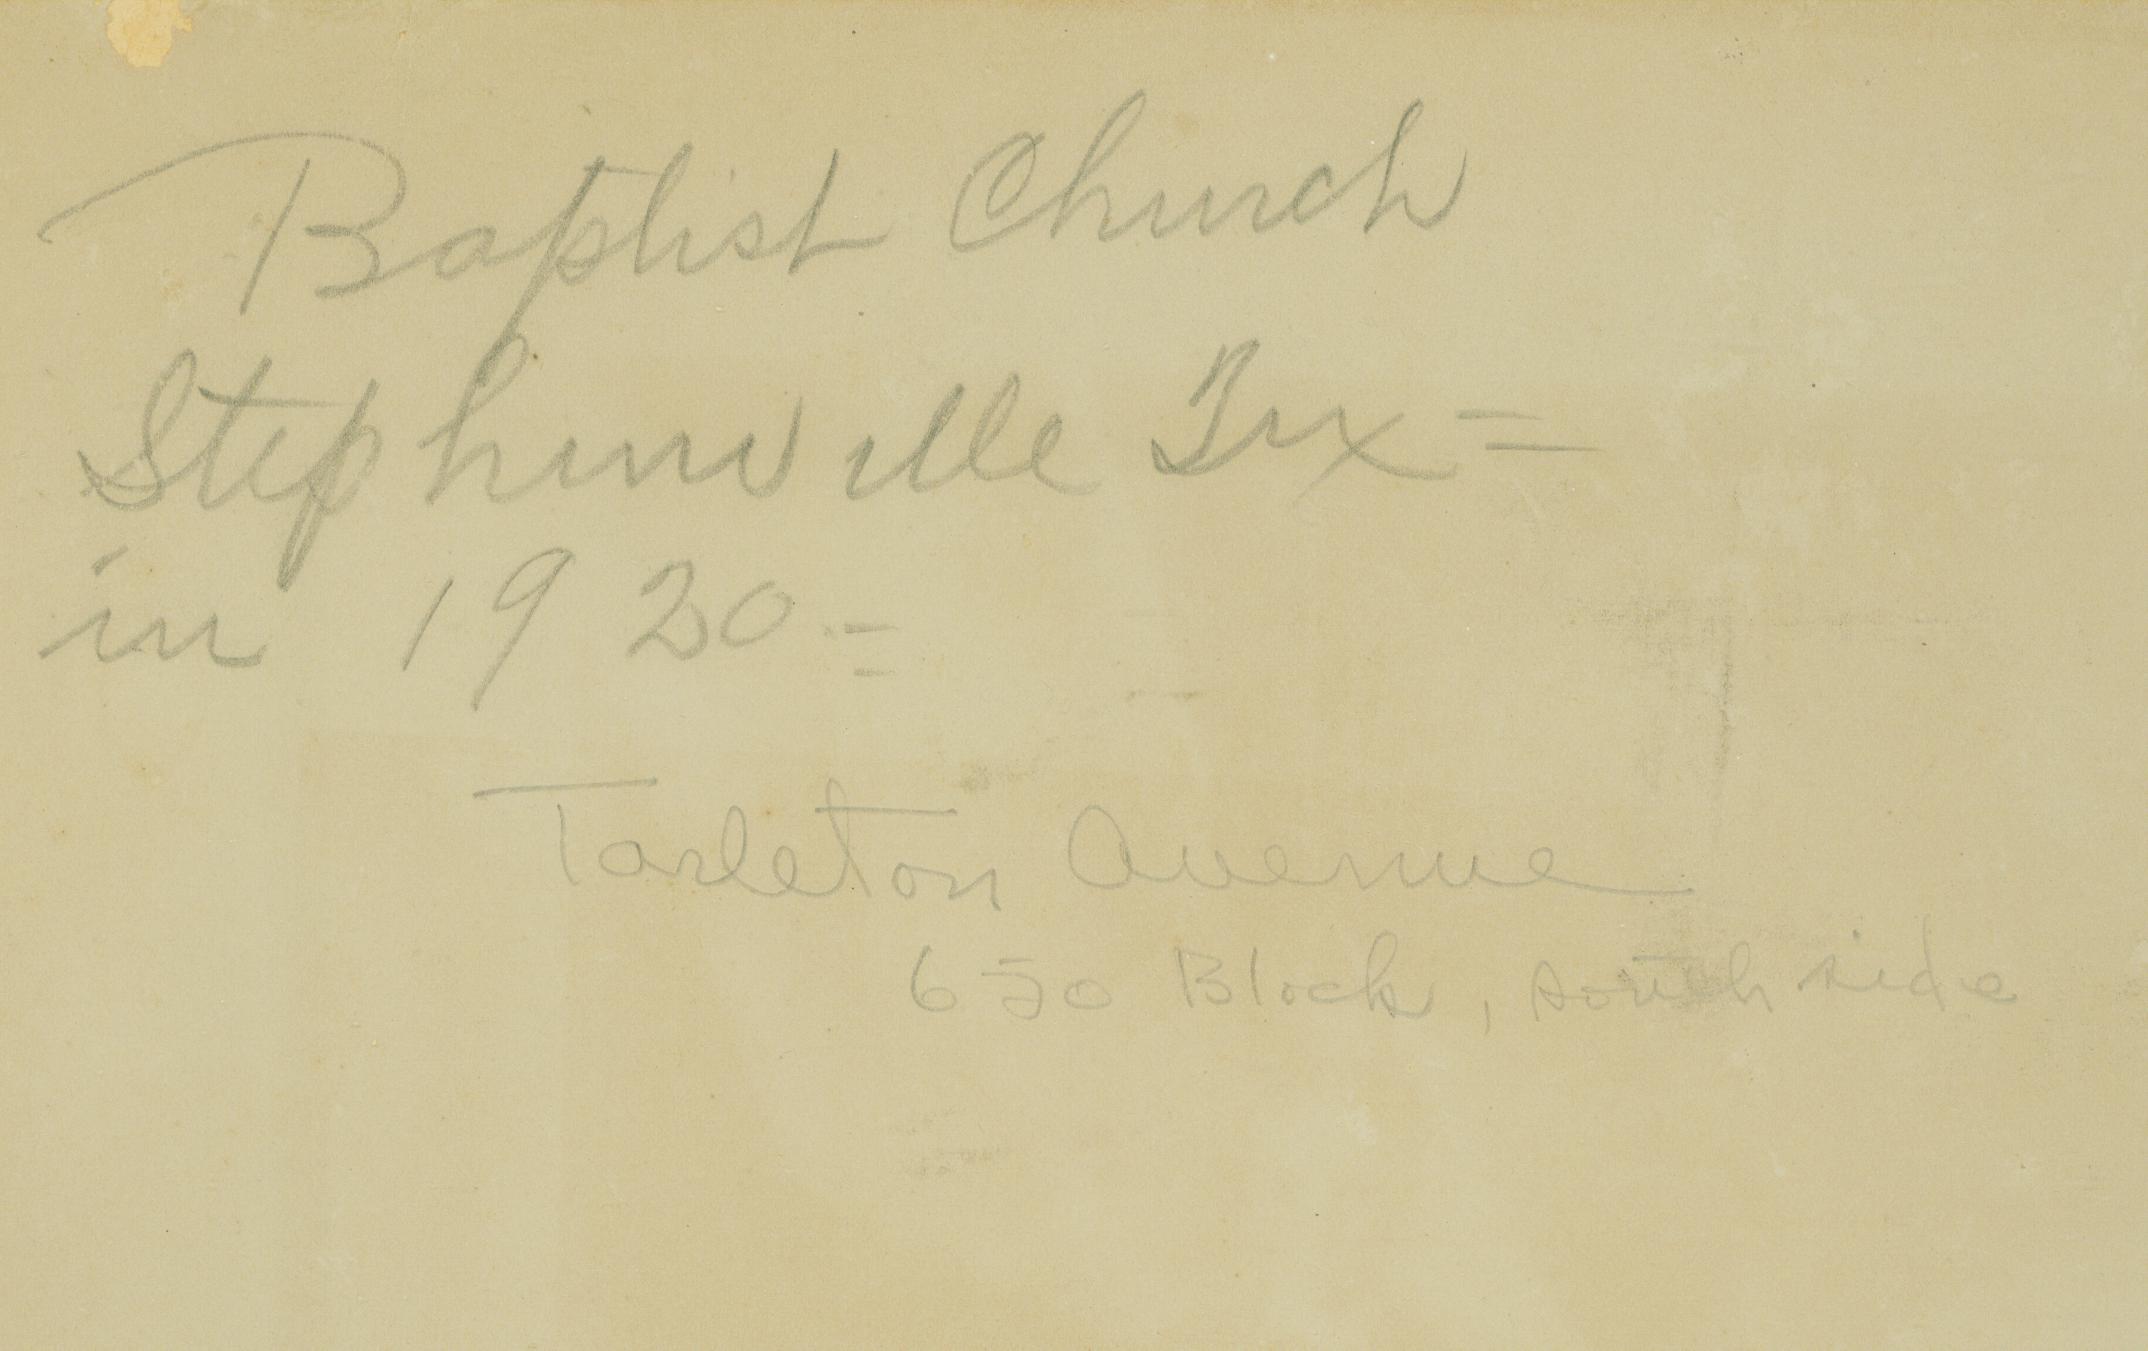 Baptist Church
Stephenville Tex=
in 1920=
Tarleton Avenue
650 Block, south side